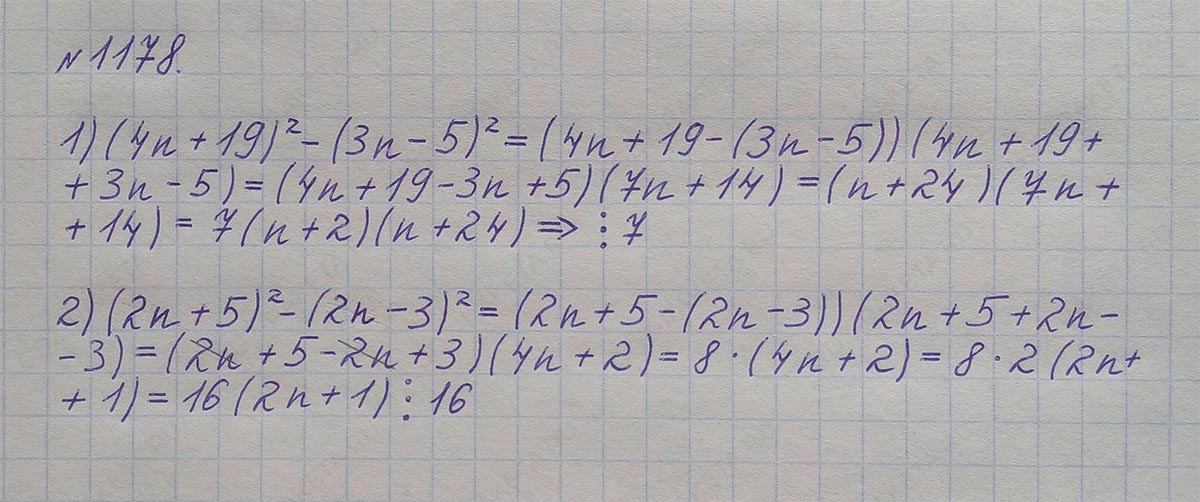 №1178.
1) (4n+19)²-(3n-5)²=(4n+19-(3n-5))(4n+19+
+3n-5)=(4n+19-3n+5)(7n+14)=(n+24)(7n+
+14)=7(n+2)(n+24)⇒ ⋮7
2) (2n+5)²-(2n-3)²=(2n+5-(2n-3))(2n+5+2n-
-3)=(2n+5-2n+3)(4n+2)=8·(4n+2)=8·2(2n+
+1)=16(2n+1)⋮16